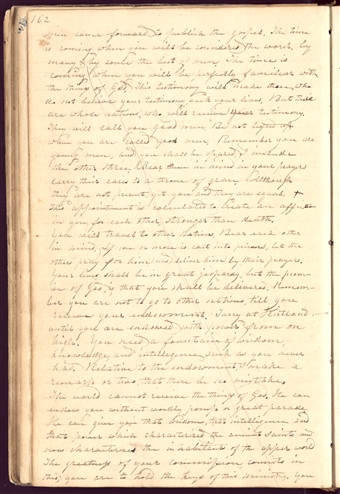 162
men come forward to publish the gospel. The time
is coming when you will be considered the worst by
many & by some the best of men. The time is
coming when you will be perfectly familiar with
the things of God. This testimony will make those who
do not believe your testimony seek your lives, But there
are whole nations, who will receive your testimony.
They will call you good men, Be not lifted up
when you are called good men. Remember you are
young men, and you shall be spared. I include
the other three. Bear them in mind in your prayers
carry their cases to a throne of grace. Although
they are not present, yet you and they are equal.
This appointment is calculated to create an affection
in you for each other, stronger than death,
You will travel to other nations. Bear each other
in mind. If one or more is cast into prisons, let the
others pray for him and deliver him by their prayers.
Your lives shall be in great jeopardy, but the prom-
ise of God is that you shall be delivered. Remem-
ber you are not to go to other nations, till you
receive your endowment. Tarry at Kirtland
until you are endowed with power from on
high. You need a fountain of wisdom,
knowledge, and intelligence, such as you never
had. Relative to the endowment, I make a
remark or two, that there be no mistake.
The world cannot receive the things of God. He can
endow you without worldly pomp or great parade.
He can give you that wisdom, that intelligence and
that power which characterized the ancient saints and
now characterizes the inhabitants of the upper world
The greatness of your commission consists in
this; you are to hold the keys of this ministry, you